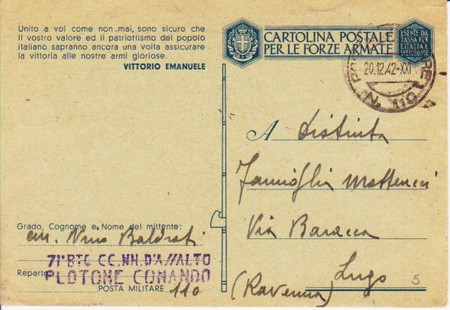 Unito a voi come non mai, sono sicuro che
il vostro valore ed il patriottismo del popolo
italiano sapranno ancora una volta assicurare
la vittoria alle nostre armi gloriose.
VITTORIO EMANUELE
CARTOLINA POSTALE
PER LE FORZE ARMATE
ESENTE DA
TASSA PER
L'ITALIA E
20.12.42-XXI
N. 110
A Distinta
Famiglia Matteucci
Via Baracca
Lugo
(Ravenna)
5
Grado, Cognome e Nome del mittente:
Nino Baldrati
71° BTG CC.NN. D'ASSALTO
Reparto
PLOTONE COMANDO
POSTA MILITARE 110